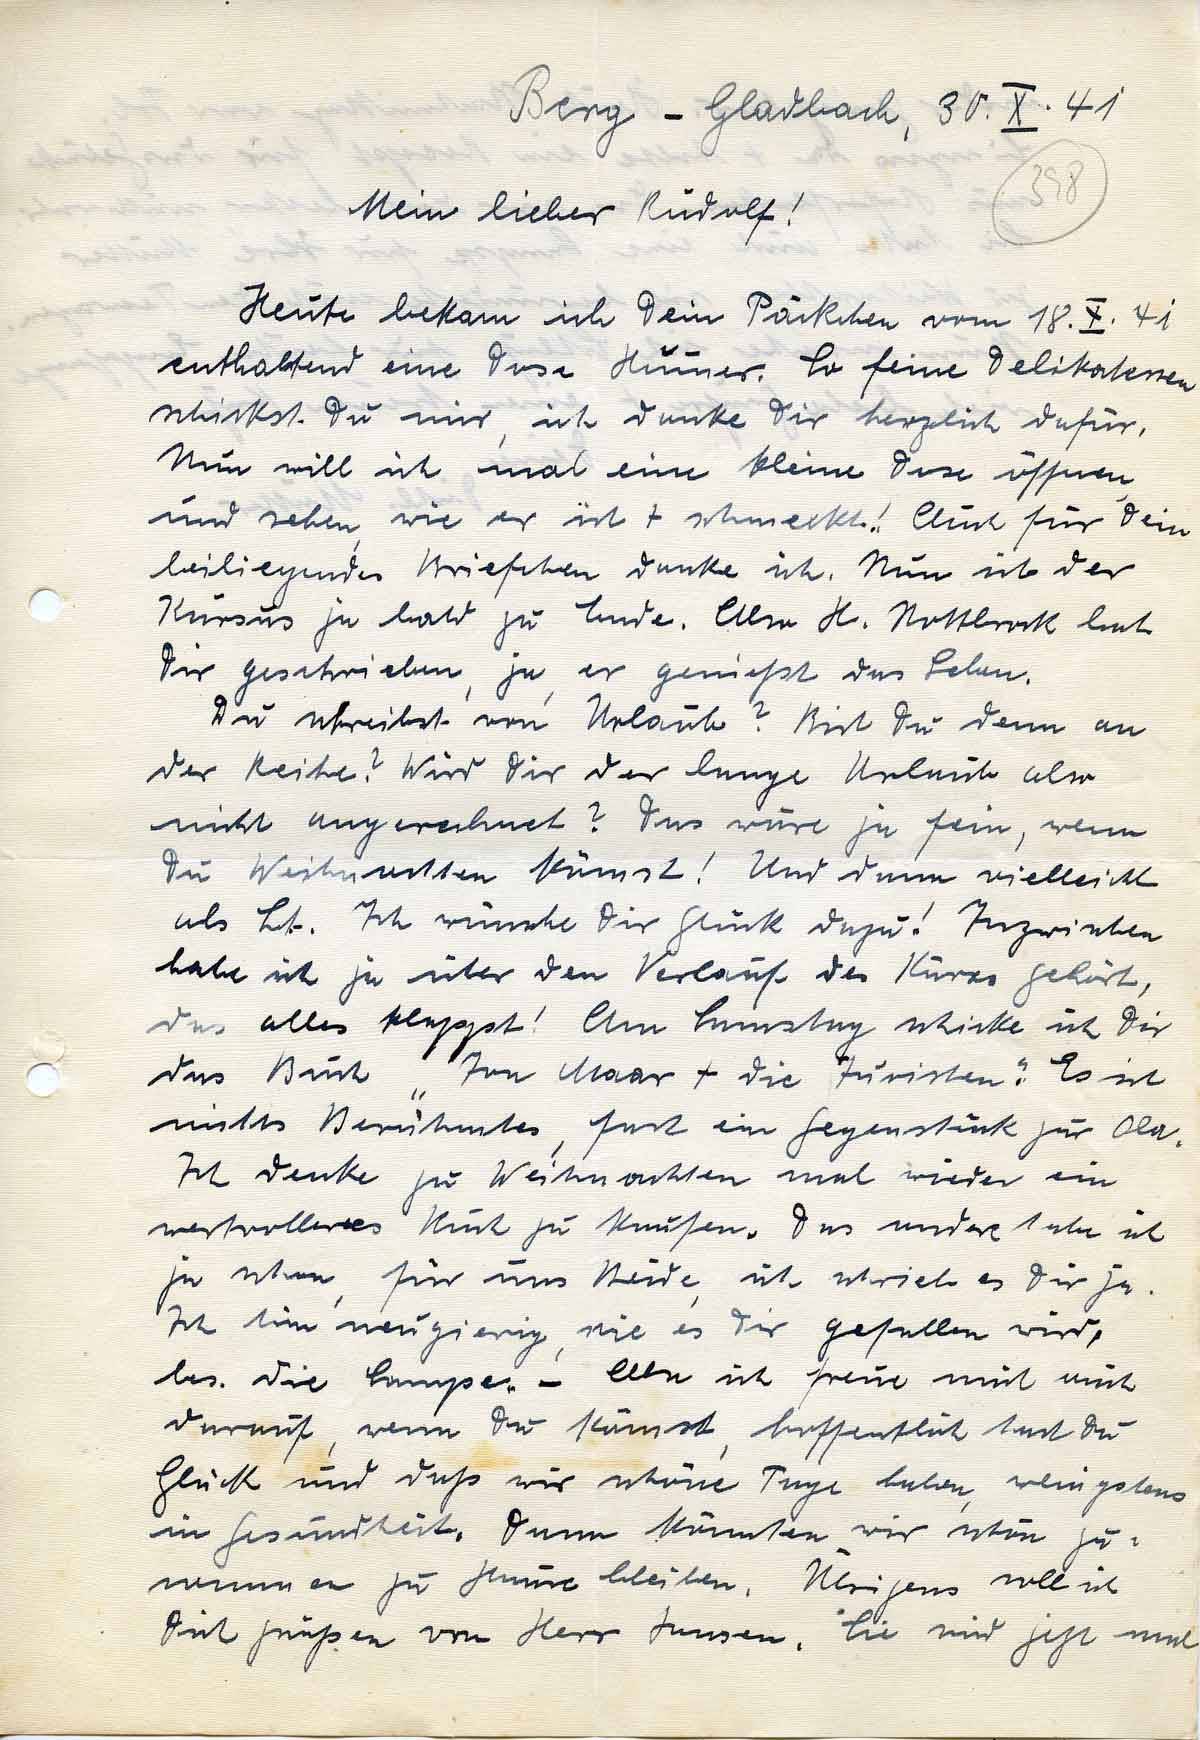 Berg-Gladbach, 30.X.41
398
Mein lieber Rudolf!
Heute bekam ich Dein Päckchen vom 18.X.41
enthaltend eine Dose Hummer. So feine Delikatessen
schickst Du mir, ich danke Dir herzlich dafür.
Nun will ich mal eine kleine Dose öffnen
und sehen, wie er ist + schmeckt! Auch für Dein
beiliegendes Briefchen danke ich. Nun ist der
Kursus ja bald zu Ende. Also H. Nottbrock hat
Dir geschrieben, ja, er genießt das Leben.
Du schreibst von Urlaub? Bist Du denn an
der Reihe? Wird Dir der lange Urlaub also
nicht angerechnet? Das wäre ja fein, wenn
Du Weihnachten kämst! Und dann vielleicht
als Lt. Ich wünsche Dir Glück dazu! Inzwischen
habe ich ja über den Verlauf des Kurses gehört,
das alles klappt! Am Samstag schicke ich Dir
das Buch „Jon Maar + die Juristen". Es ist
nichts Berühmtes, fast ein Gegenstück zur Ola.
Ich denke zu Weihnachten mal wieder ein
wertvolleres Buch zu kaufen. Das andere habe ich
ja schon, für uns Beide, ich schrieb es Dir ja.
Ich bin neugierig, wie es Dir gefallen wird,
bes. die Lampe. - Also ich freue mich auch
darauf, wenn Du kämst, hoffentlich hast Du
Glück und daß wir schöne Tage haben, weingstens
in Gesundheit. Dann könnten wir schön zu-
sammen zu Hause bleiben. Übrigens soll ich
Dich grüßen von Herr Jansen. Sie sind jetzt mal